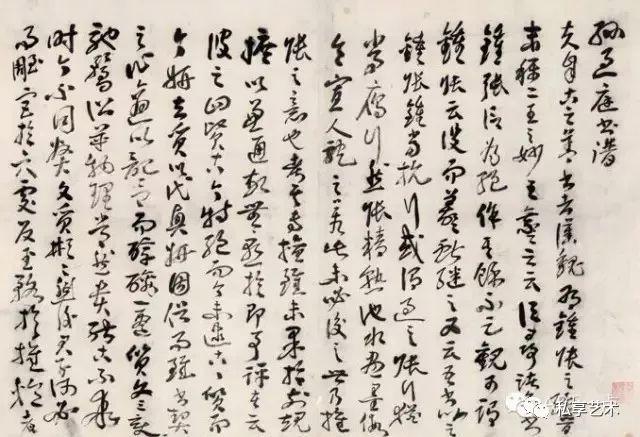 孫過庭書譜
夫自古之善書者漢魏有鍾張之絕晉
末稱二王之妙王羲之云頃尋諸名書
鍾張信為絕其餘不足觀可謂
鍾張云沒而羲獻繼之又云吾書比之
鍾張鍾當抗行或謂過之張草猶
當鴈行然張精熟池水盡墨假
令寡人耽之若此未必後之此乃推
張之意也考其專擅雖未果於前規
摭以兼通故無慙於即事評者云
彼之四賢古今特絕而今未逮古古質而
今妍夫質以代興妍因俗易雖書契
之作適以記言而醇醨一遷質文三變
馳騖沿革物理常然貴能古不乖
時今不同弊文質彬彬然後君子何必
易雕宮於穴處反玉輅於椎輪者
私享艺术